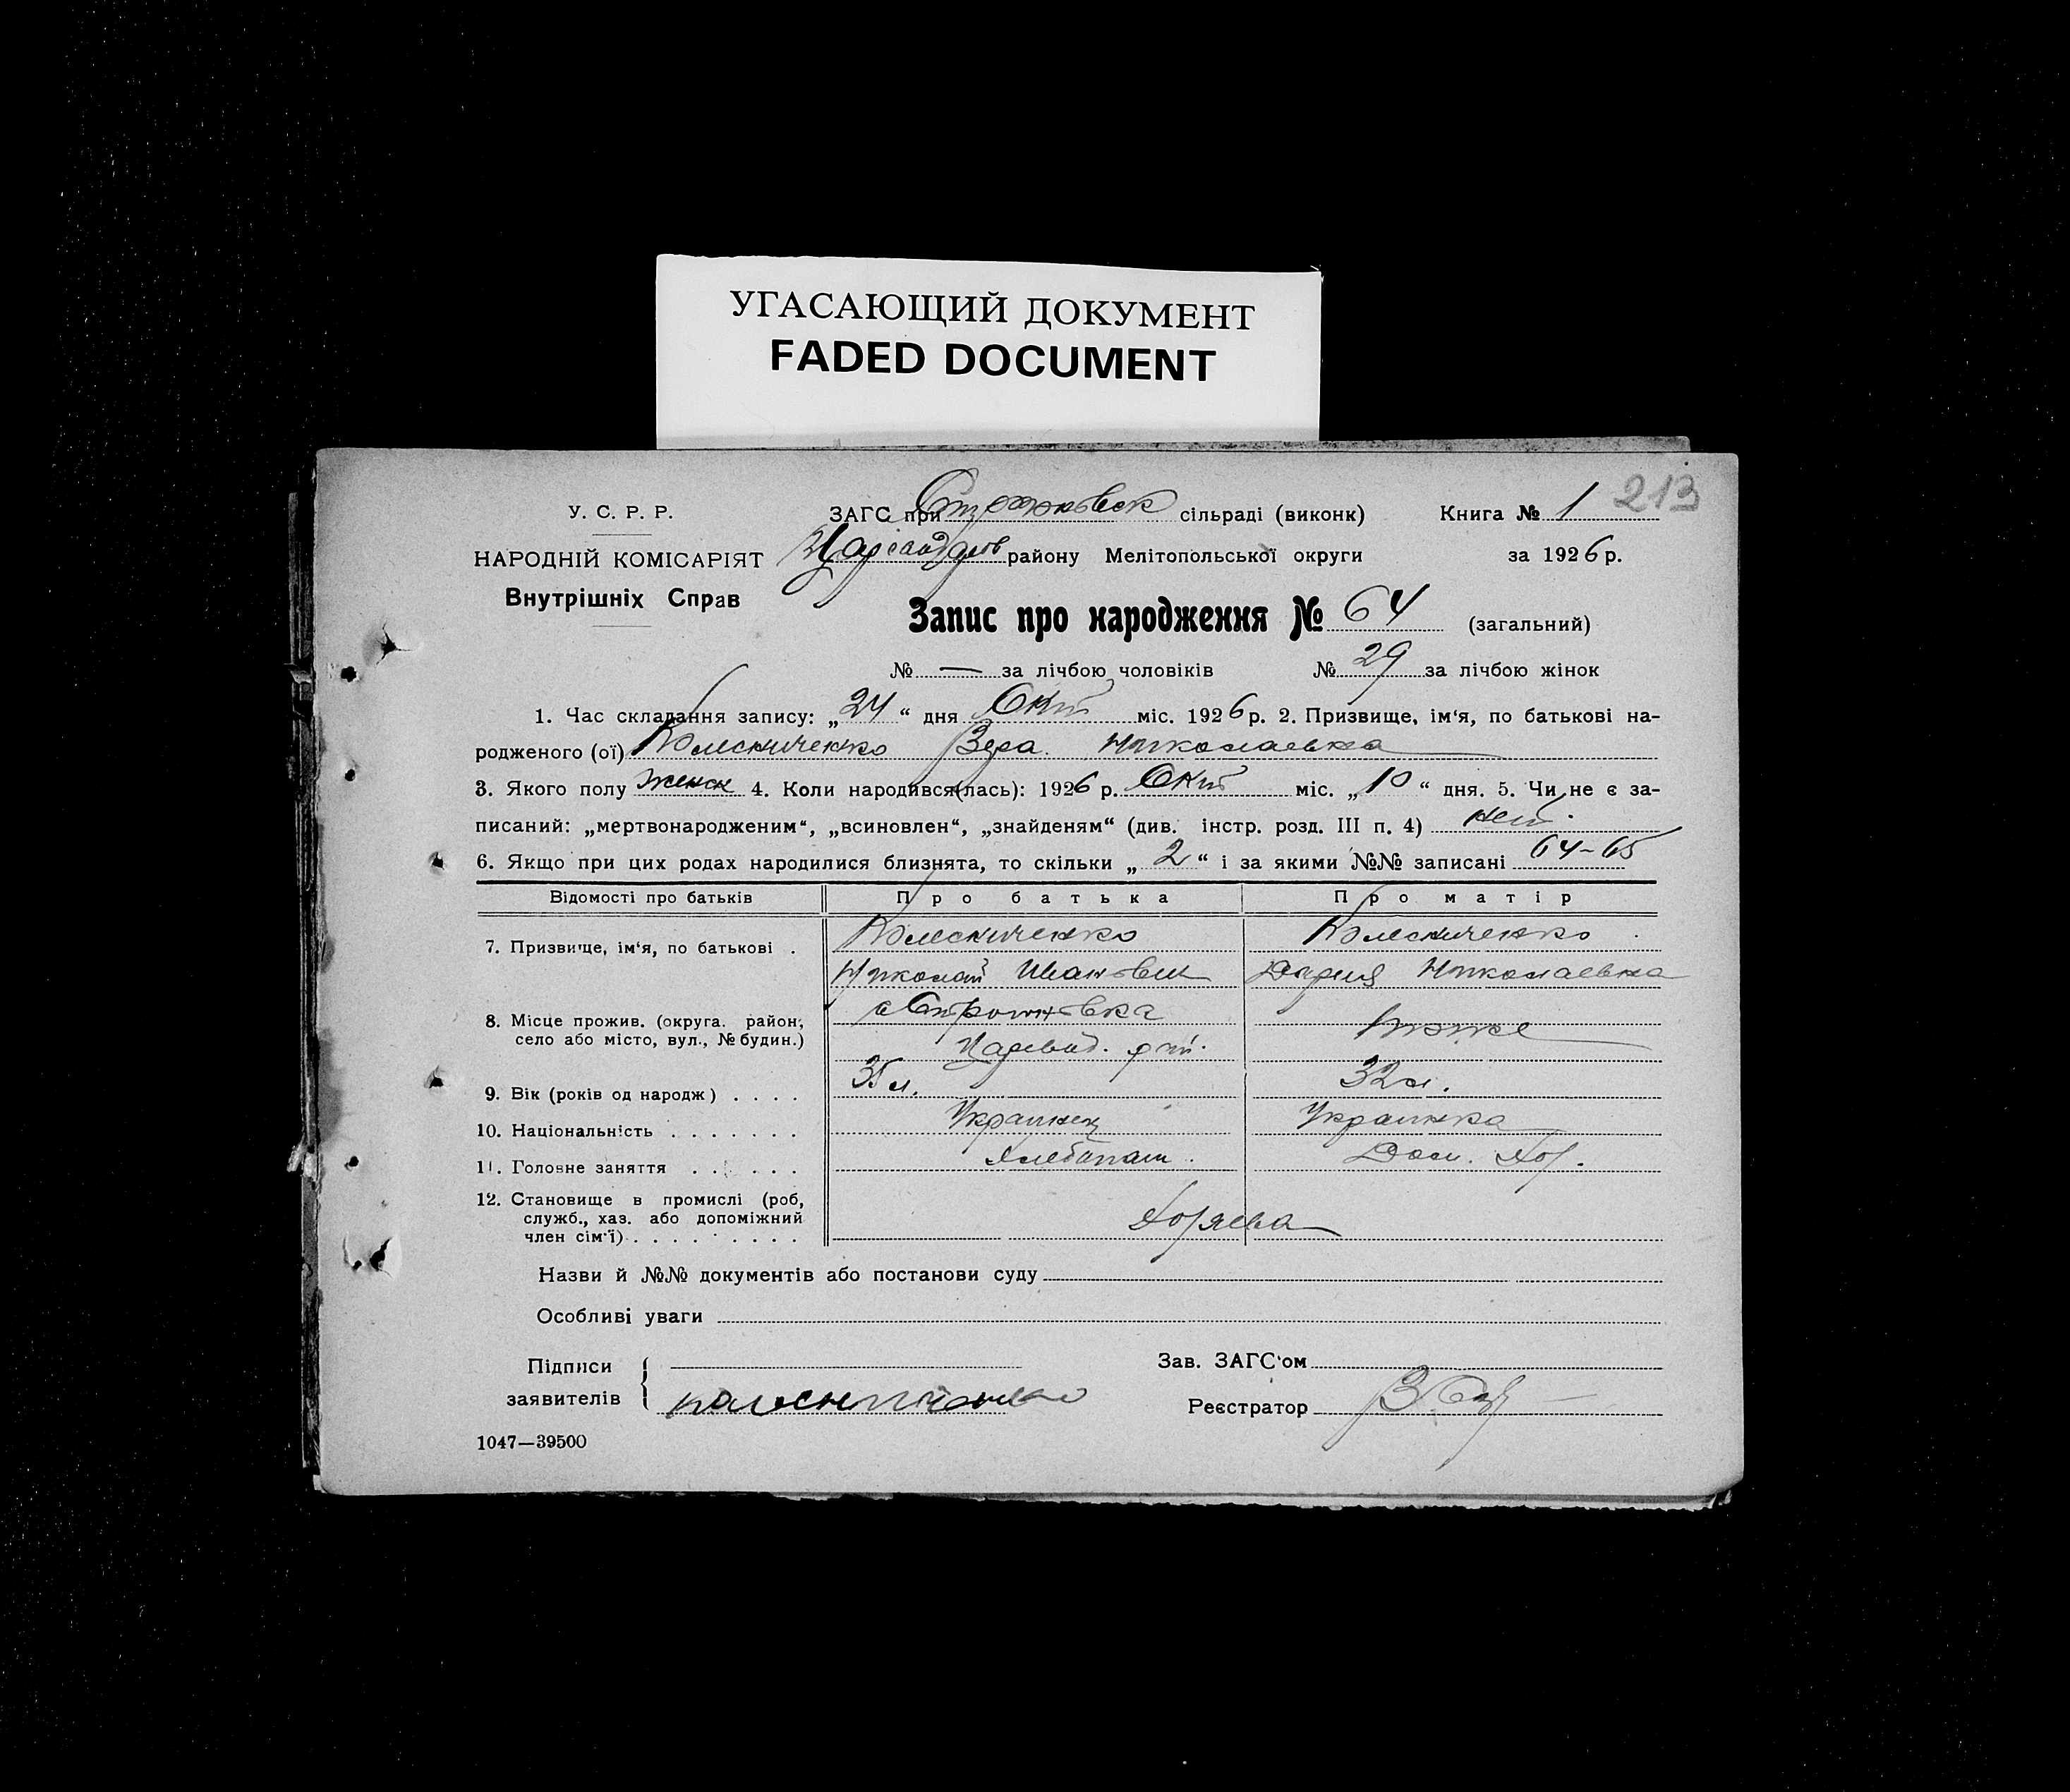 УГАСАЮЩИЙ ДОКУМЕНТ
FADED DOCUMENT
213
У. С. Р. Р.
НАРОДНІЙ КОМІСАРІЯТ
Внутрішніх Справ
ЗАГС при сільраді (виконк)
Книга № 1
району Мелітопольської округи
за 1926 р.
Запис про народження № 64 (загальний)
№ — за лічбою чоловіків № 29 за лічбою жінок
1. Час складання запису: „24“ дня Окт міс. 1926 р. 2. Призвище, ім‘я, по батькові на-
родженого (ої) Колесниченко Вера Николаевна
3. Якого полу женск 4. Коли народився(лась): 1926 р. Окт міс. „10“ дня. 5. Чи не є за-
писаний: „мертвонародженим“, „всиновлен“, „знайденям“ (див. інстр. розд. III п. 4) нет.
6. Якщо при цих родах народилися близнята, то скільки „2“ і за якими №№ записані 64-65
Відомості про батьків Про батька Про матір
7. Призвище, ім‘я, по батькові . Колесниченко Колесниченко
Николай Иванович Дария Николаевна
8. Місце прожив. (округа. район, село або місто, вул., № будин.)
тоже
9. Вік (років од народж) . . . . 35 л. 32 л.
10. Національність . . . . . . . Украинец Украинка
11. Головне заняття . . . . . . Хлебопаш. Дом. Хоз.
12. Становище в промислі (роб,
служб., хаз. або допоміжний
член сім‘ї) . . . . . . . . . Хозяева
Назви й №№ документів або постанови суду
Особливі уваги
Підписи
заявителів
Зав. ЗАГС‘ом
Реєстратор
1047—39500